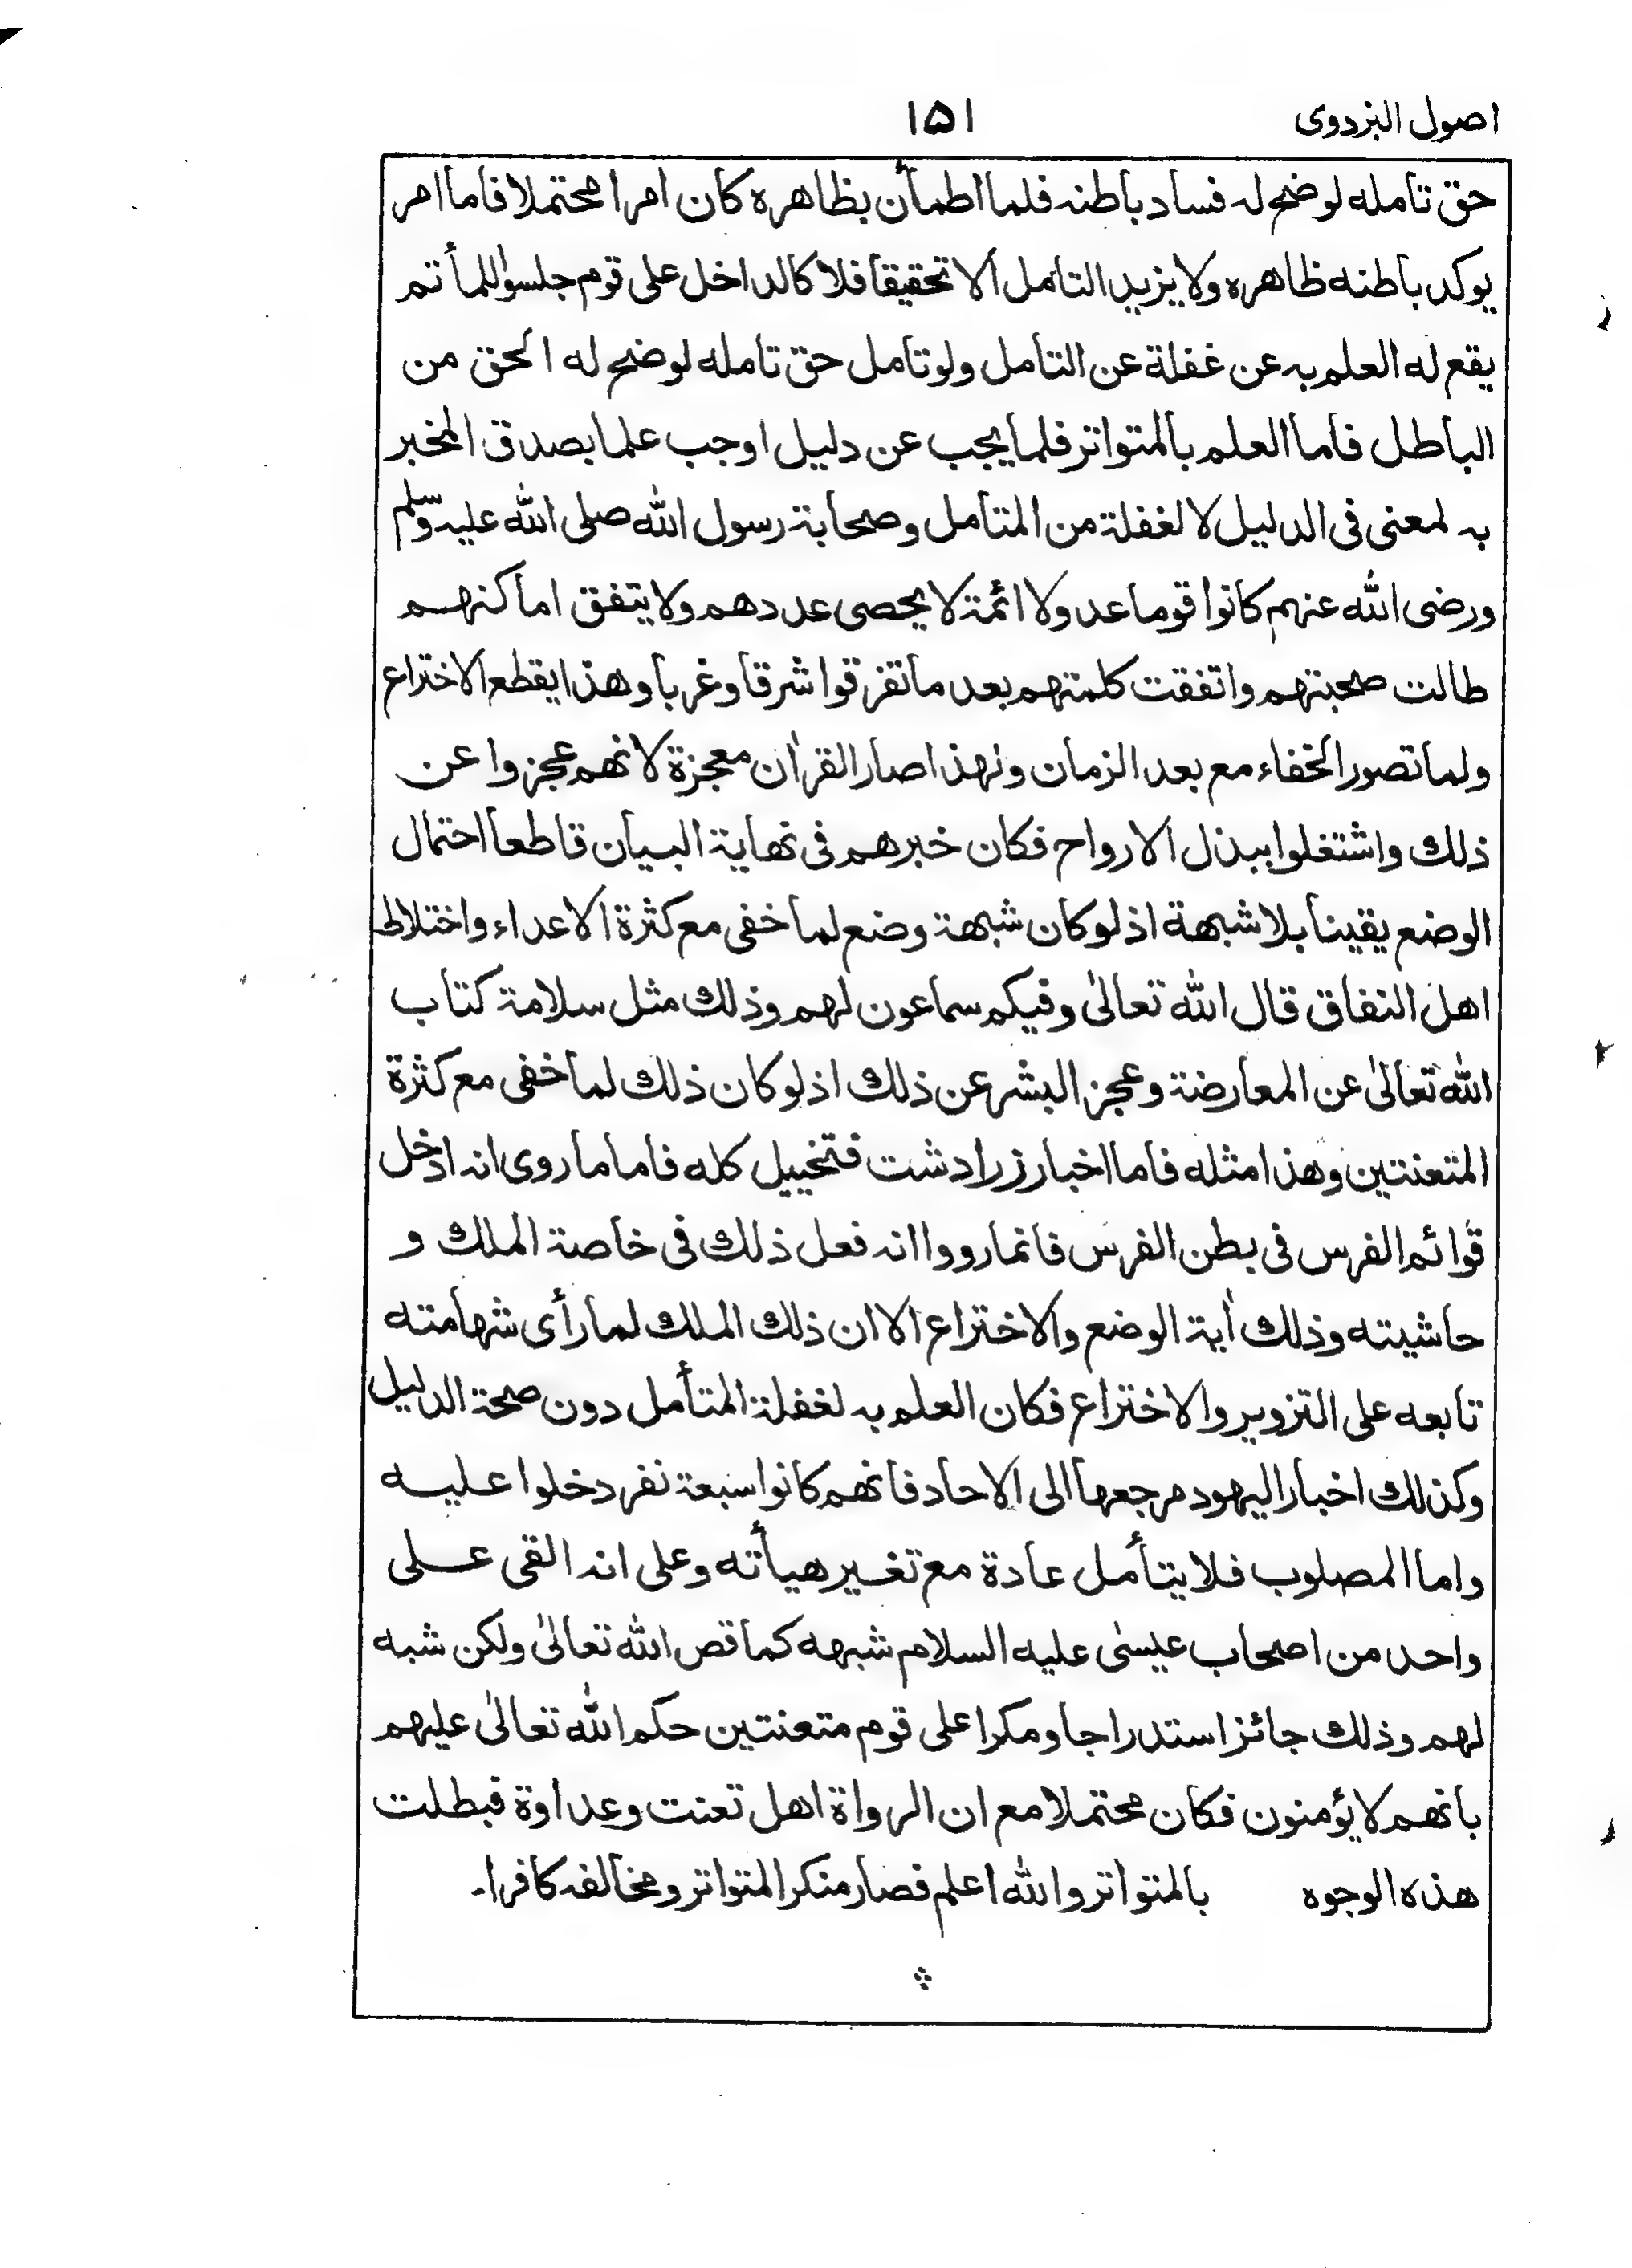 اصول البزدوی ۱۵۱
حق تامله لوضح له فساد باطنه فلما اطمأن بظاهره كان امرا محتملا فاما امر
يوكد باطنه ظاهره ولا يزيد التامل الا تحقيقا فلا كالداخل على قوم جلسوا للمأتم
يقع له العلم به عن غفلة عن التامل ولو تامل حق تامله لوضح له الحق من
الباطل فاما العلم بالمتواتر فلما يجب عن دليل اوجب علما بصدق المخبر
به لمعنى فى الدليل لا لغفلة من المتامل وصحابة رسول الله صلى الله عليه وسلم
ورضى الله عنهم كانوا قوما عدولا ائمة لا يحصى عددهم ولا يتفق اماكنهم
طالت صحبتهم واتفقت كلمتهم بعد ما تفرقوا شرقا وغربا وهذا يقطع الاختراع
ولما تصور الخفاء مع بعد الزمان ولهذا صار القرآن معجزة لانهم عجزوا عن
ذلك واشتغلوا ببذل الارواح فكان خبرهم فى نهاية البيان قاطعا احتمال
الوضع يقينا بلا شبهة اذ لو كان شبهة وضع لما خفى مع كثرة الاعداء واختلاط
اهل النفاق قال الله تعالىٰ وفيكم سماعون لهم وذلك مثل سلامة كتاب
الله تعالىٰ عن المعارضة وعجز البشر عن ذلك اذ لو كان ذلك لما خفى مع كثرة
المتعنتين وهذا مثله فاما اخبار زرادشت فتخييل كله فاما ما روى انه ادخل
قوائم الفرس فى بطن الفرس فانما رووا انه فعل ذلك فى خاصة الملك و
حاشيته وذلك اٰية الوضع والاختراع الا ان ذلك الملك لما رأى شهامته
تابعه على التزوير والاختراع فكان العلم به لغفلة المتأمل دون صحة الدليل
وكذلك اخبار اليهود مرجعها الى الاحاد فانهم كانوا سبعة نفر دخلوا عليه
واما المصلوب فلا يتأمل عادة مع تغير هيأته وعلى انه القى على
واحد من اصحاب عيسىٰ عليه السلام شبهه كما قص الله تعالىٰ ولكن شبه
لهم وذلك جائز استدراجا ومكرا على قوم متعنتين حكم الله تعالىٰ عليهم
بانهم لا يؤمنون فكان محتملا مع ان الرواة اهل تعنت وعداوة فبطلت
هذه الوجوه بالمتواتر والله اعلم فصار منكر المتواتر ومخالفه كافرا۔